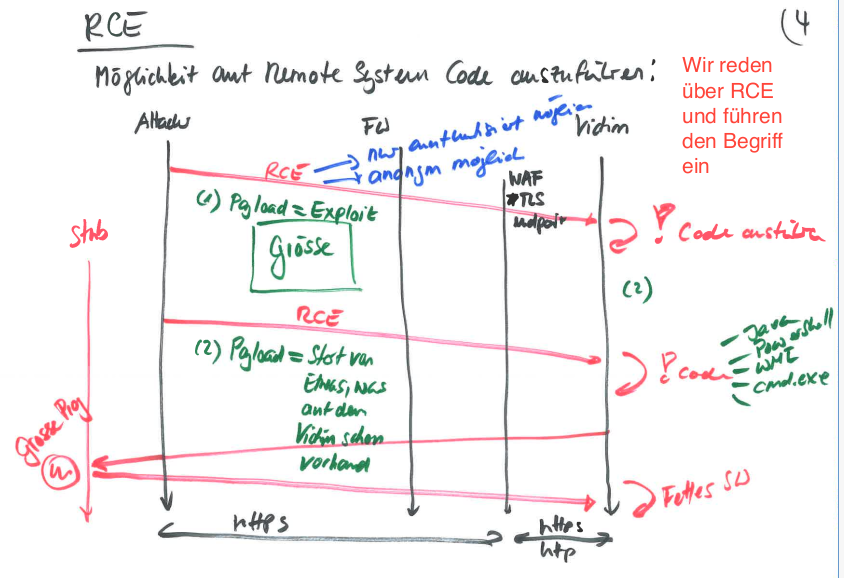 RCE
(4
Möglichkeit auf Remote System Code auszuführen:
Wir reden
über RCE
und führen
den Begriff
ein
FW
Victim
nur authentisiert möglich
anonym möglich
RCE
WAF
TLS
(1) Payload = Exploit
Grösse
! Code ausführen
(2)
RCE
(2) Payload = Start von
Etwas, was
auf dem
Victim schon
vorhand
! code
Java
Powershell
WMI
cmd.exe
Grosse Prog
Fettes SW
https
https
http